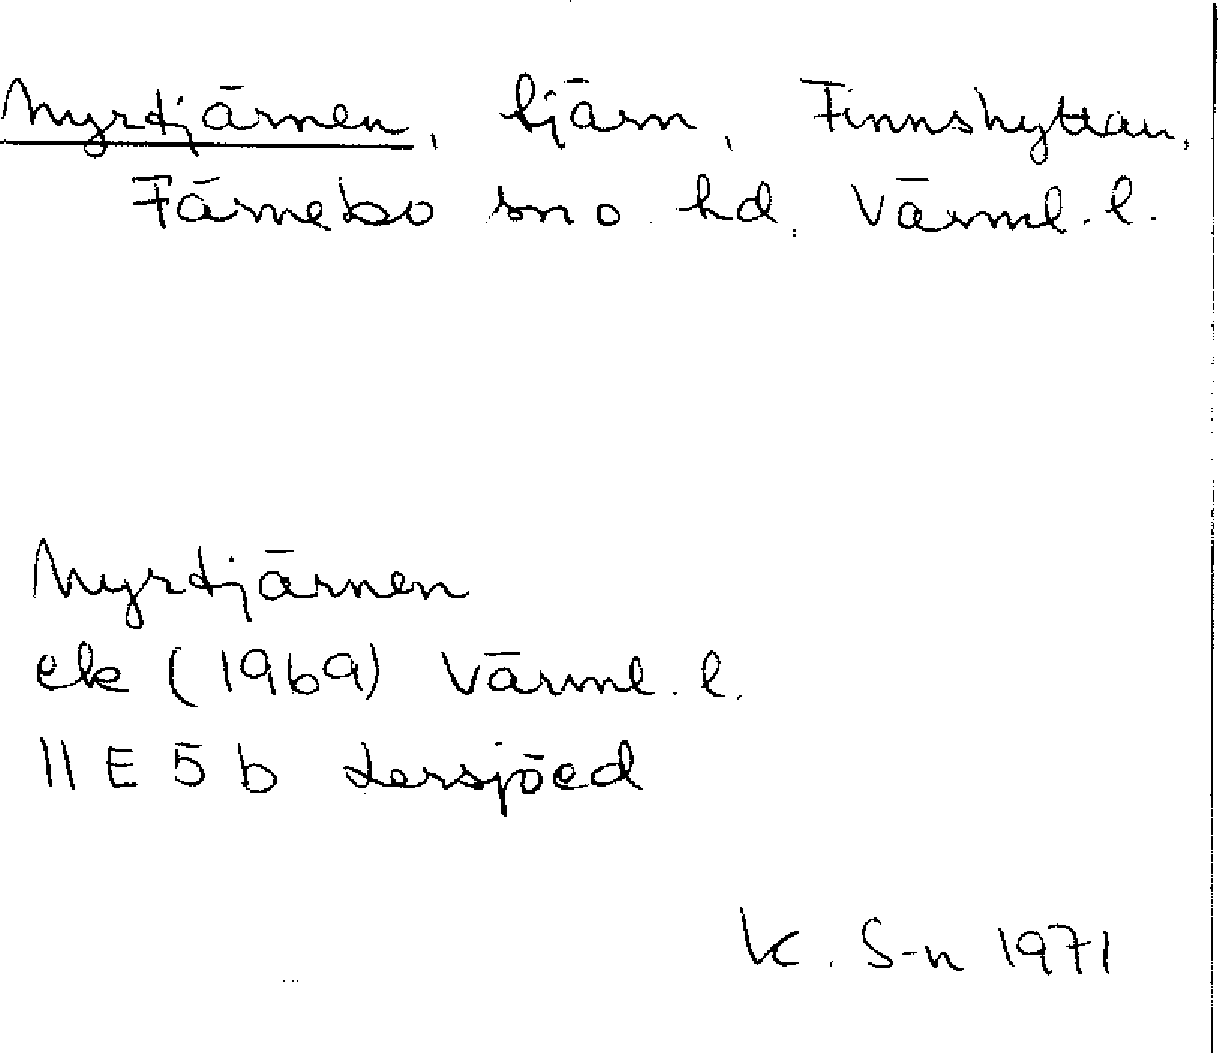 Myrtjärnen, tjärn, Finnshyttan,
Färnebo sn o. hd, Värml. l.
Myrtjärnen
ek (1969) Värml. l.
11 E 5 b Lersjöed
K. S-n 1971